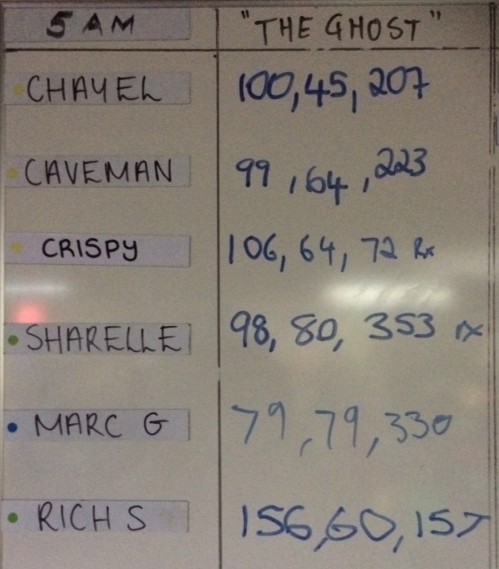 5 AM "THE GHOST"
CHAYEL 100, 45, 207
CAVEMAN 99, 64, 223
CRISPY 106, 64, 72 Rx
SHARELLE 98, 80, 353 rx
MARC G 79, 79, 330
RICH S 156, 60, 157